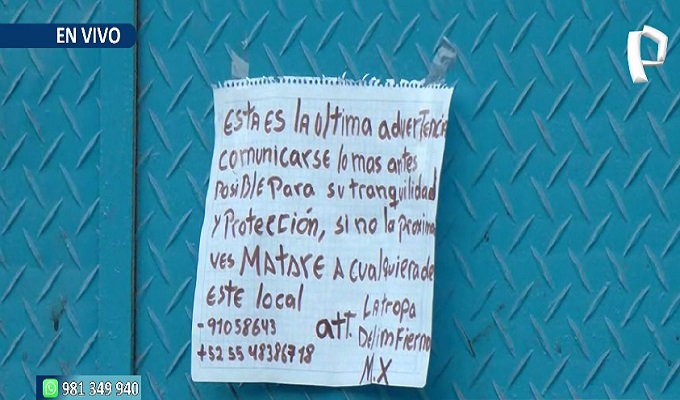 EN VIVO
ESTA ES LA Ultima adverTencia
comunicarse lo mas antes
posiBlE Para su tranquilidad
y ProTección, si no la proxima
ves MATARE A cualquiera de
ESTE local
-91058643
+52 55 48386718
aTT. LATropa
DElimFierno
M.X
981 349 940